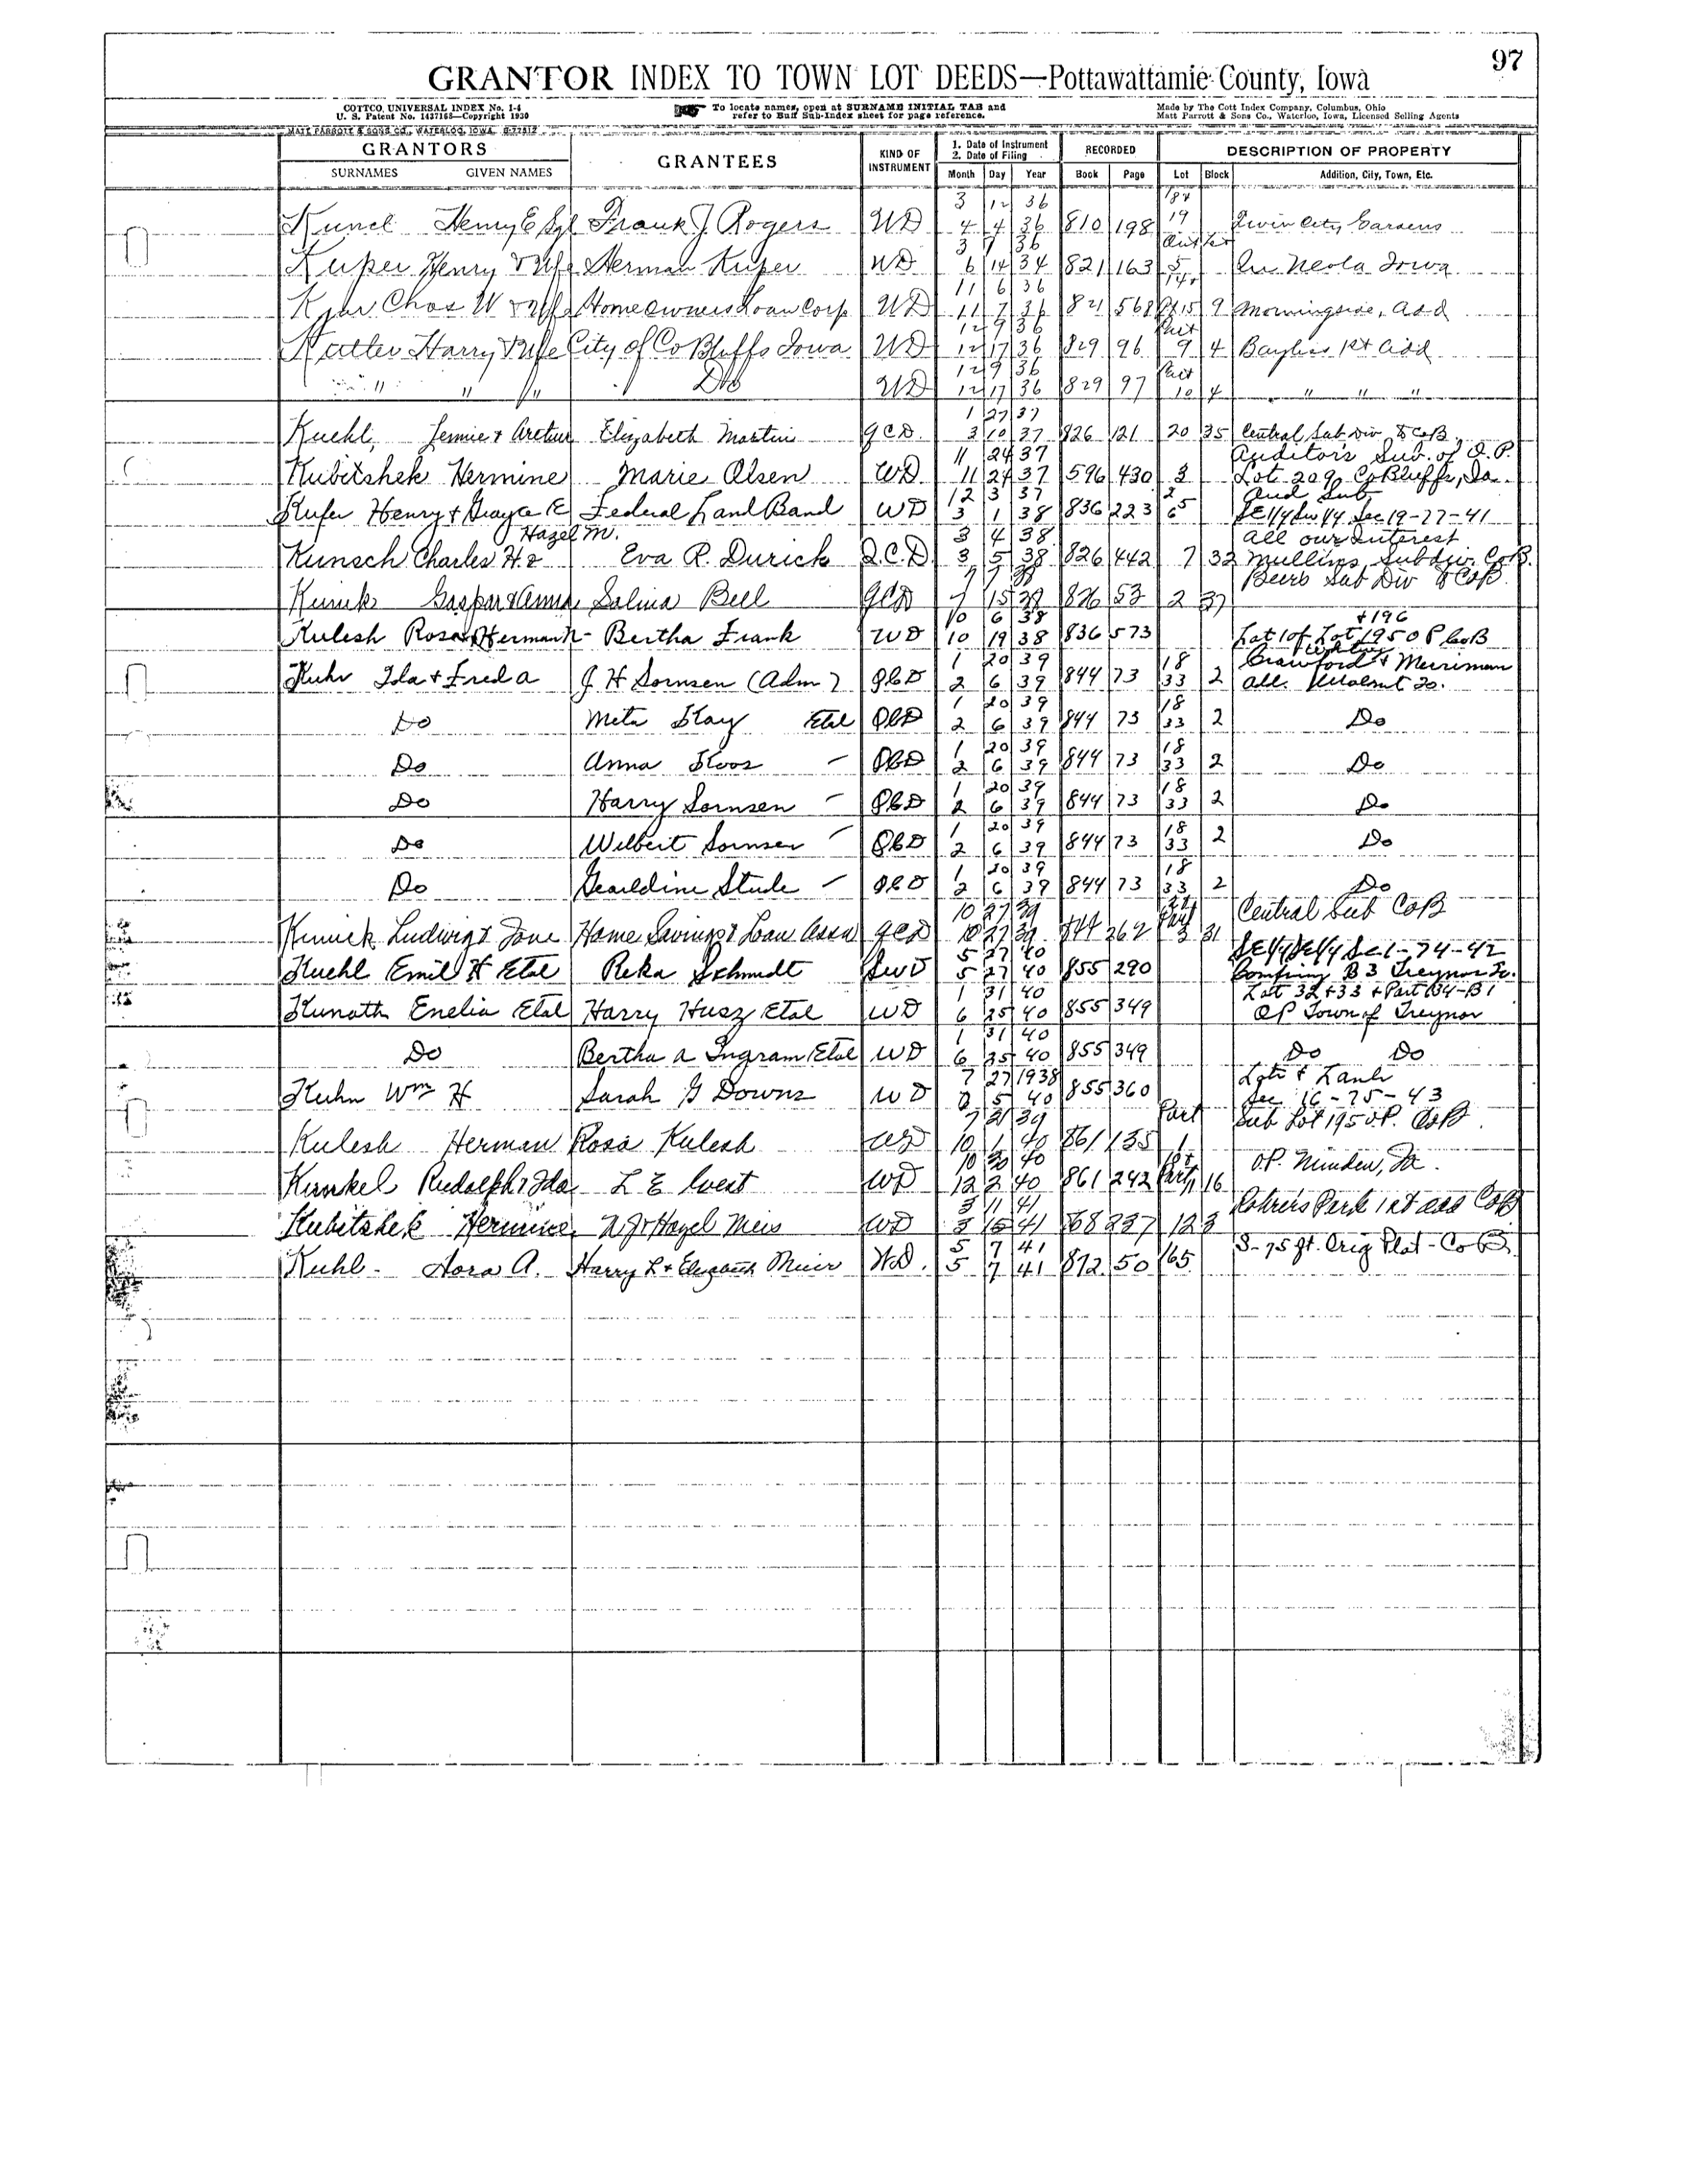 97
GRANTOR INDEX TO TOWN LOT DEEDS—Pottawattamie County, Iowa
COTTCO. UNIVERSAL INDEX No. 1-4
U. S. Patent No. 1437165—Copyright 1930
To locate names, open at SURNAME INITIAL TAB and
refer to Buff Sub-Index sheet for page reference.
Made by The Cott Index Company, Columbus, Ohio
Matt Parrott & Sons Co., Waterloo, Iowa, Licensed Selling Agents
MATT PARROTT & SONS CO., WATERLOO, IOWA
GRANTORS GRANTEES KIND OF INSTRUMENT 1. Date of Instrument 2. Date of Filing RECORDED DESCRIPTION OF PROPERTY
SURNAMES GIVEN NAMES Month Day Year Book Page Lot Block Addition, City, Town, Etc.
3 12 36
Henry E Sgl Frank J. Rogers WD 4 4 36 810 198 19 Twin City Gardens
3 7 36
Henry & Wife Herman WD 6 14 34 821 163 5 In Neola Iowa
11 6 36
Chas W & Wife Homeowners Loan Corp WD 11 7 36 821 568 Pt 15 9 Morningside, Add
12 9 36 Part
Harry & Wife City of Co Bluffs Iowa WD 12 17 36 829 96 9 4 Bayliss 1st Add
12 9 36 Part
" " " Do WD 12 17 36 829 97 10 4 " " "
1 27 37
Kuehl, Jennie & Arthur Elizabeth Martin QCD 3 10 37 826 121 20 35 Central Sub Div to CoB
11 24 37 Auditor's Sub. of O.P.
Kubitshek Hermine Marie Olsen WD 11 24 37 596 430 3 Lot 209, Co Bluffs, Ia.
12 3 37 2 Aud Sub
Kufer Henry & Federal Land Band WD 3 1 38 836 223 65 SE1/4 SW 1/4 Sec 19-77-41
Hazel M. 3 4 38 All our Interest
Kunsch Charles H. & Eva R. Durick Q.C.D 3 5 38 826 442 7 32 Mullins Subdiv. CoB.
Beers Sub Div to CoB
Gaspar & Anna Salina Bell QCD 7 15 826 53 2 37
10 6 38 + 196
Kulesh Rosa & Herman N- Bertha Frank WD 10 19 38 836 573 Lot 1 of Lot 195 O P CoB
1 20 39 18 Crawford & Merriman
Kuhr Ida & Fred A J H Sornsen (Adm) QCD 2 6 39 844 73 33 2 Add. Walnut Io.
1 20 39 18
Do Meta Kay Etal QCD 2 6 39 844 73 33 2 Do
1 20 39 18
Do Anna Koos — QCD 2 6 39 844 73 33 2 Do
1 20 39 18
Do Harry Sornsen — QCD 2 6 39 844 73 33 2 Do
1 20 39 18
Do Wilbert Sornsen — QCD 2 6 39 844 73 33 2 Do
1 20 39 18
Do Gearldine Stude — QCD 2 6 39 844 73 33 2 Do
10 27 39 Part Central Sub CoB
Ludwig & Jane Home Savings & Loan Assn QCD 10 27 39 844 262 3 31
5 27 40 SE1/4 SE1/4 Sec 1-74-42
Kuehl Emil H Etal Reka Schmidt SWD 5 27 40 855 290 B 3 Treynor Io.
1 31 40 Lot 32 + 33 + Part B4-B1
Kunath Enelia Etal Harry Husz Etal WD 6 25 40 855 349 OP Town of Treynor
1 31 40
Do Bertha A Ingram Etal WD 6 25 40 855 349 Do Do
7 27 1938 Lots & Lands
Kuhn Wm H Sarah G Downs WD 5 40 855 360 Sec 16-75-43
7 21 39 Part Sub Lot 195 O.P. CoB.
Kulesh Herman Rosa Kulesh WD 10 1 40 861 135 1
10 30 40 O.P. Minden, Ia.
Kunkel Rudolph & Ida L E West WD 12 2 40 861 242 Part 16
3 11 41 Rohrers Park 1st add CoB
Kubitshek Hermine N J & Hazel WD 3 15 41 868 237 12 3
5 7 41 S-75 ft. Orig Plat-Co B.
Kuhl- Nora A. Harry L & Elizabeth Muir WD. 5 7 41 872 50 165